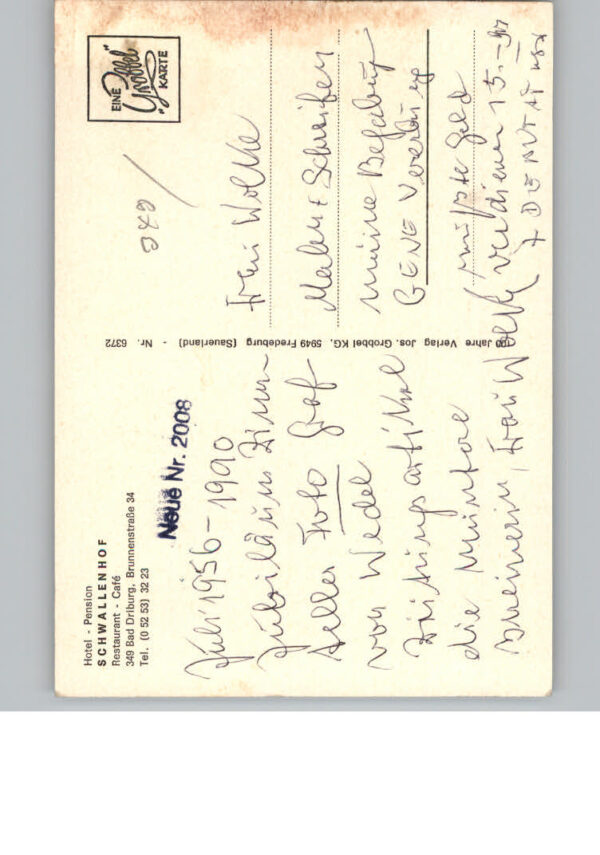 Hotel - Pension
SCHWALLENHOF
Restaurant - Café
349 Bad Driburg, Brunnenstraße 34
Tel. (0 52 53) 32 23
Neue Nr. 2008
Juli 1956-1990
Jubiläum Zimm
Teller Foto Graf
von Wedel
Zeitungsartikel
die muntere
Bremerin, Frau Wolke
100 Jahre Verlag Jos. Grobbel KG, 5949 Fredeburg (Sauerland) - Nr. 6372
EINE
"Grobbel"
KARTE
349/
Frau Wolke
Malen + Schreiben
meine Begabung
GENE
müßte Geld
verdienen 15.-